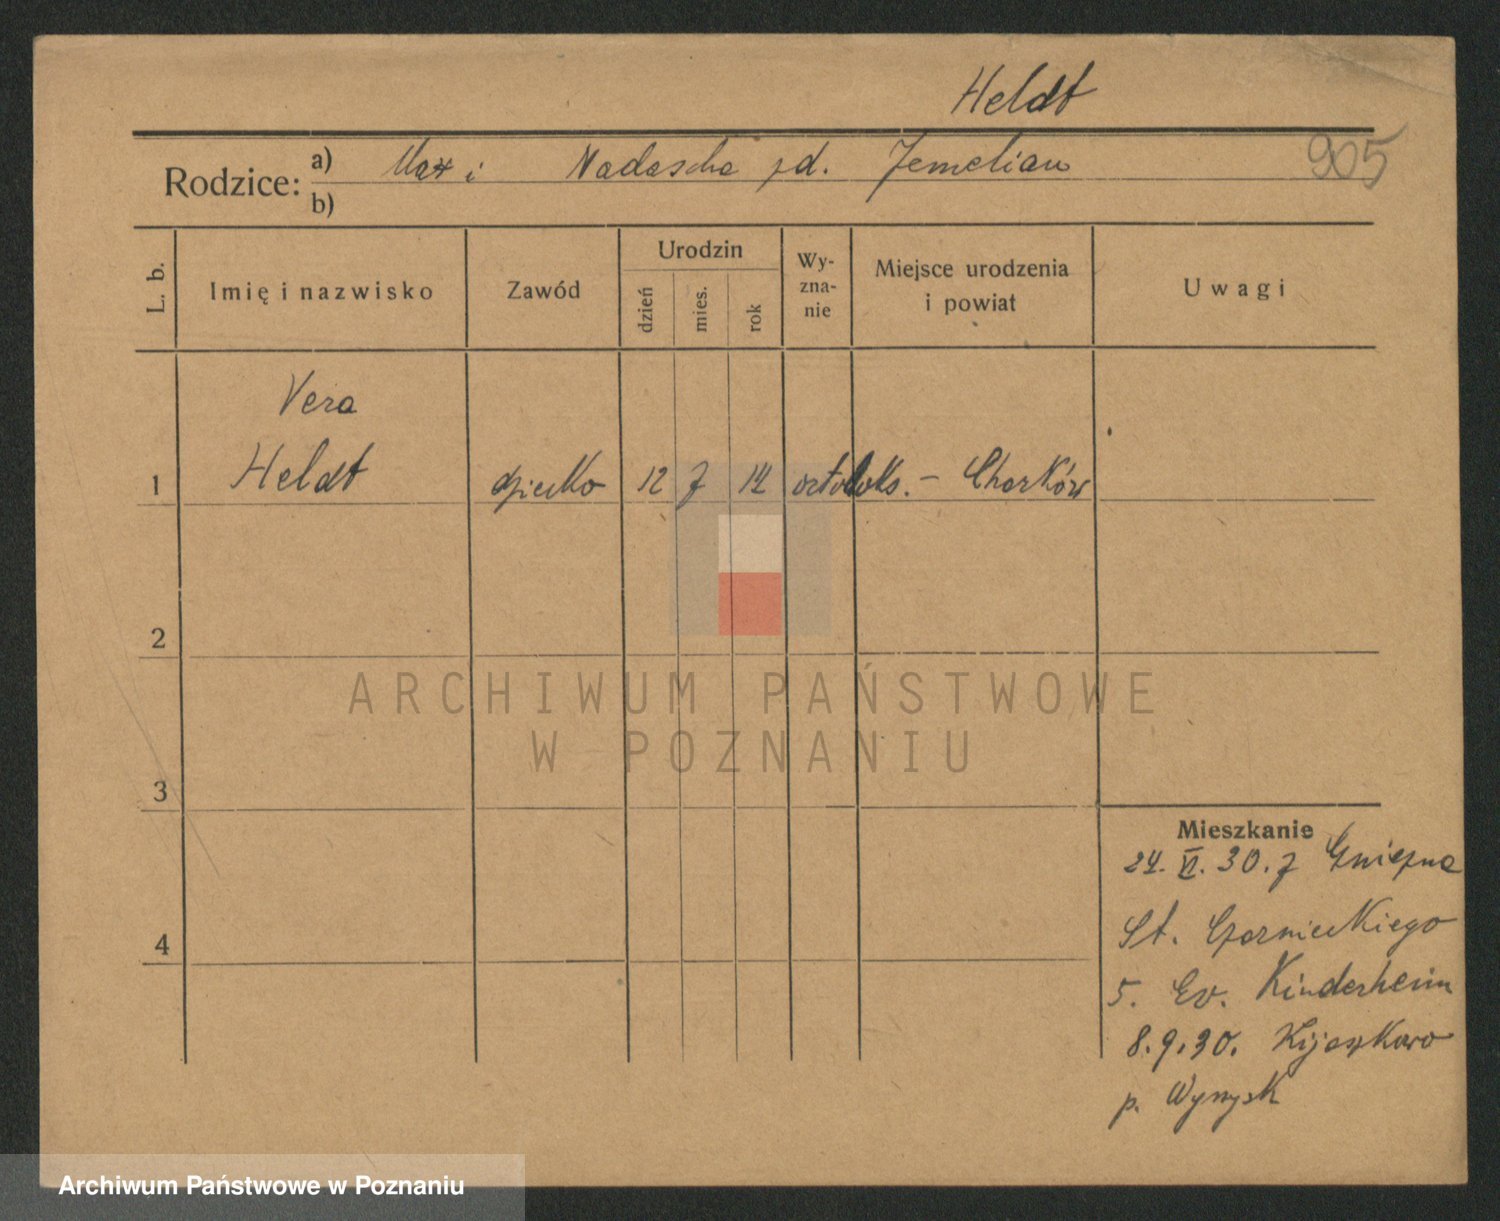 Heldt
905
Rodzice: a) Max i Nadascha zd. Jemelian
b)
L. b. Imię i nazwisko Zawód Urodzin dzień mies. rok Wy-zna-nie Miejsce urodzenia i powiat Uwagi
Vera
1 Heldt dziecko 12 7 14 ortodoks. - Charków
2
3
4
Mieszkanie
24. VI. 30. z Gniezna
St. Czarnieckiego
5. Ev. Kinderheim
8.9.30. Kijaszkowo
p. Wyrzysk
ARCHIWUM PAŃSTWOWE
W POZNANIU
Archiwum Państwowe w Poznaniu